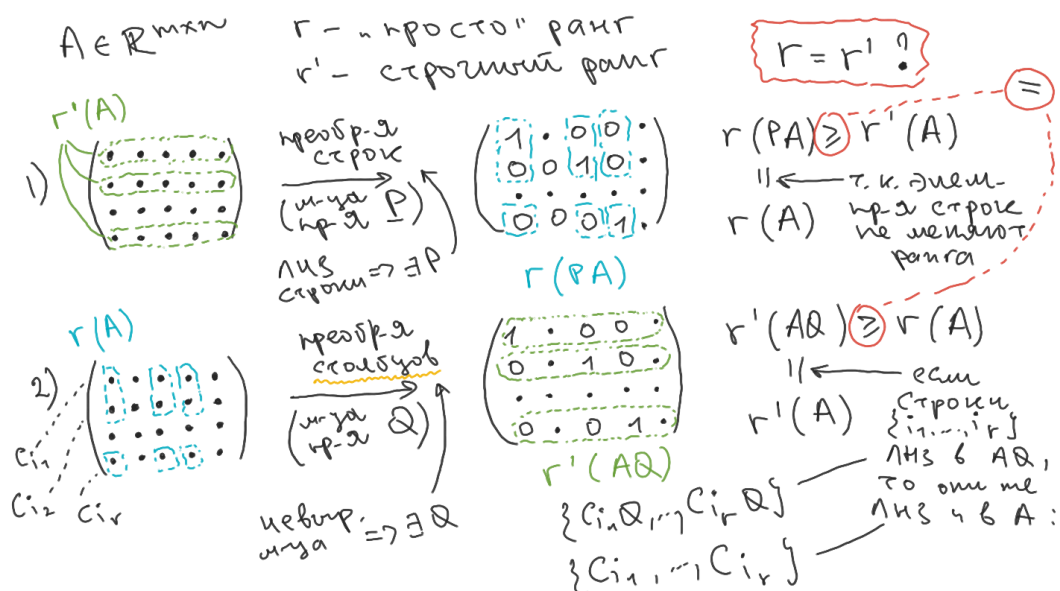 A ∈ ℝ^{m×n}
r – „просто" ранг
r' – строчный ранг
r = r' ?
=
r'(A)
1)
преобр-я
строк
(м-ца
пр-я P)
ЛНЗ
строки => ∃P
1 · 0 0 ·
0 0 1 0 ·
· · · · ·
0 0 0 1 ·
r(PA)
r(PA) ≥ r'(A)
|| ← т.к. элем-
r(A) пр-я строк
не меняют
ранга
r(A)
2)
C_{i_1}
C_{i_2}
C_{i_r}
преобр-я
столбцов
(м-ца
пр-я Q)
невыр.
м-ца => ∃Q
1 · 0 0 ·
0 · 1 0 ·
· · · ·
0 · 0 1 ·
r'(AQ)
r'(AQ) ≥ r(A)
|| ← если
r'(A) строки
{i_1,...,i_r}
ЛНЗ в AQ,
то они же
ЛНЗ и в A:
{C_{i_1}Q,..,C_{i_r}Q}
{C_{i_1},..,C_{i_r}}